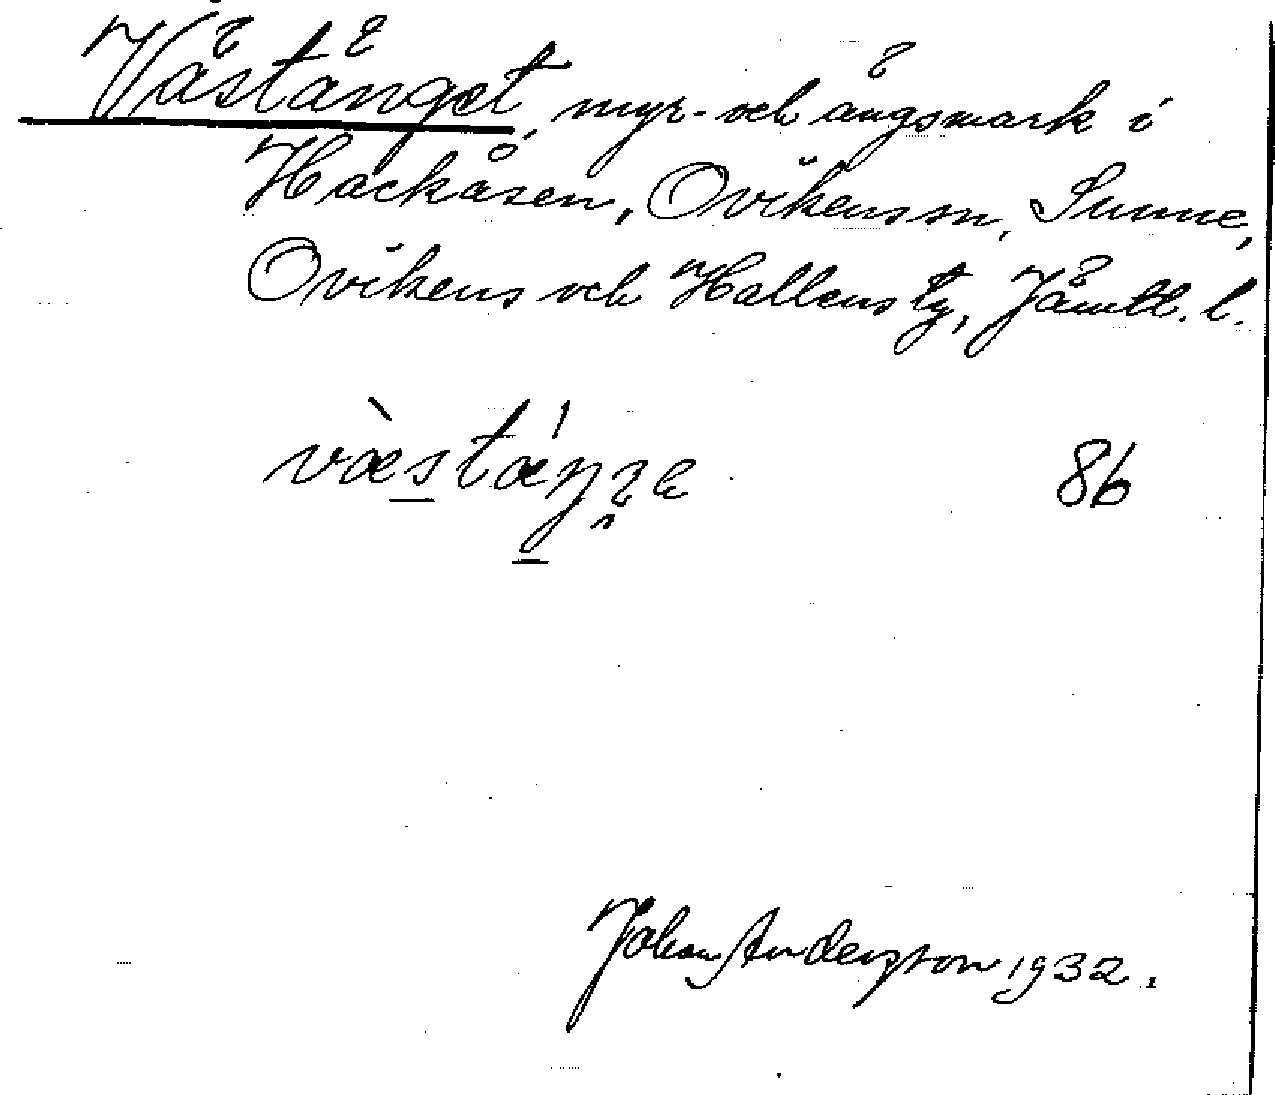 Västänget, myr- och ängsmark i
Hackåsen, Ovikens sn, Sunne,
Ovikens och Hallens tg, Jämtl. l.
86
Johan Anderzson 1932.